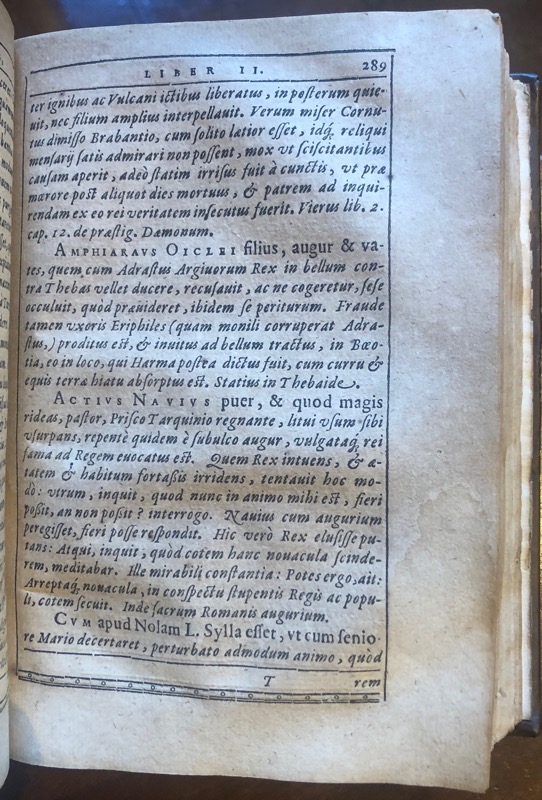 LIBER II. 289
ter ignibus ac Vulcani ictibus liberatus, in posterum quie-
uit, nec filium amplius interpellauit. Verum miser Cornu-
tus dimisso Brabantio, cum solito latior esset, idq́; reliqui
mensarij satis admirari non possent, mox vt sciscitantibus
causam aperit, adeò statim irrisus fuit à cunctis, vt præ
mœrore post aliquot dies mortuus, & patrem ad inqui-
rendam ex eo rei veritatem insecutus fuerit. Vierus lib. 2.
cap. 12. de præstig. Dæmonum.
AMPHIARAVS OICLEI filius, augur & va-
tes, quem cum Adrastus Argiuorum Rex in bellum con-
tra Thebas vellet ducere, recusauit, ac ne cogeretur, sese
occuluit, quòd præuideret, ibidem se periturum. Fraude
tamen vxoris Eriphiles (quam monili corruperat Adra-
stus,) proditus est, & inuitus ad bellum tractus, in Bœo-
tia, eo in loco, qui Harma postea dictus fuit, cum curru &
equis terræ hiatu absorptus est. Statius in Thebaide.
ACTIVS NAVIVS puer, & quod magis
rideas, pastor, Prisco Tarquinio regnante, litui vsum sibi
vsurpans, repentè quidem è subulco augur, vulgataq́; rei
fama ad Regem euocatus est. Quem Rex intuens, & æ-
tatem & habitum fortaßis irridens, tentauit hoc mo-
dò: virum, inquit, quod nunc in animo mihi est, fieri
poßit, an non poßit? interrogo. Nauius cum augurium
peregisset, fieri posse respondit. Hic verò Rex elusisse pu-
tans: Atqui, inquit, quòd cotem hanc nouacula scinde-
rem, meditabar. Ille mirabili constantia: Potes ergo, ait:
Arreptaq́; nouacula, in conspectu stupentis Regis ac popu-
li, cotem secuit. Inde sacrum Romanis augurium.
CVM apud Nolam L. Sylla esset, vt cum senio-
re Mario decertaret, perturbato admodum animo, quòd
T rem